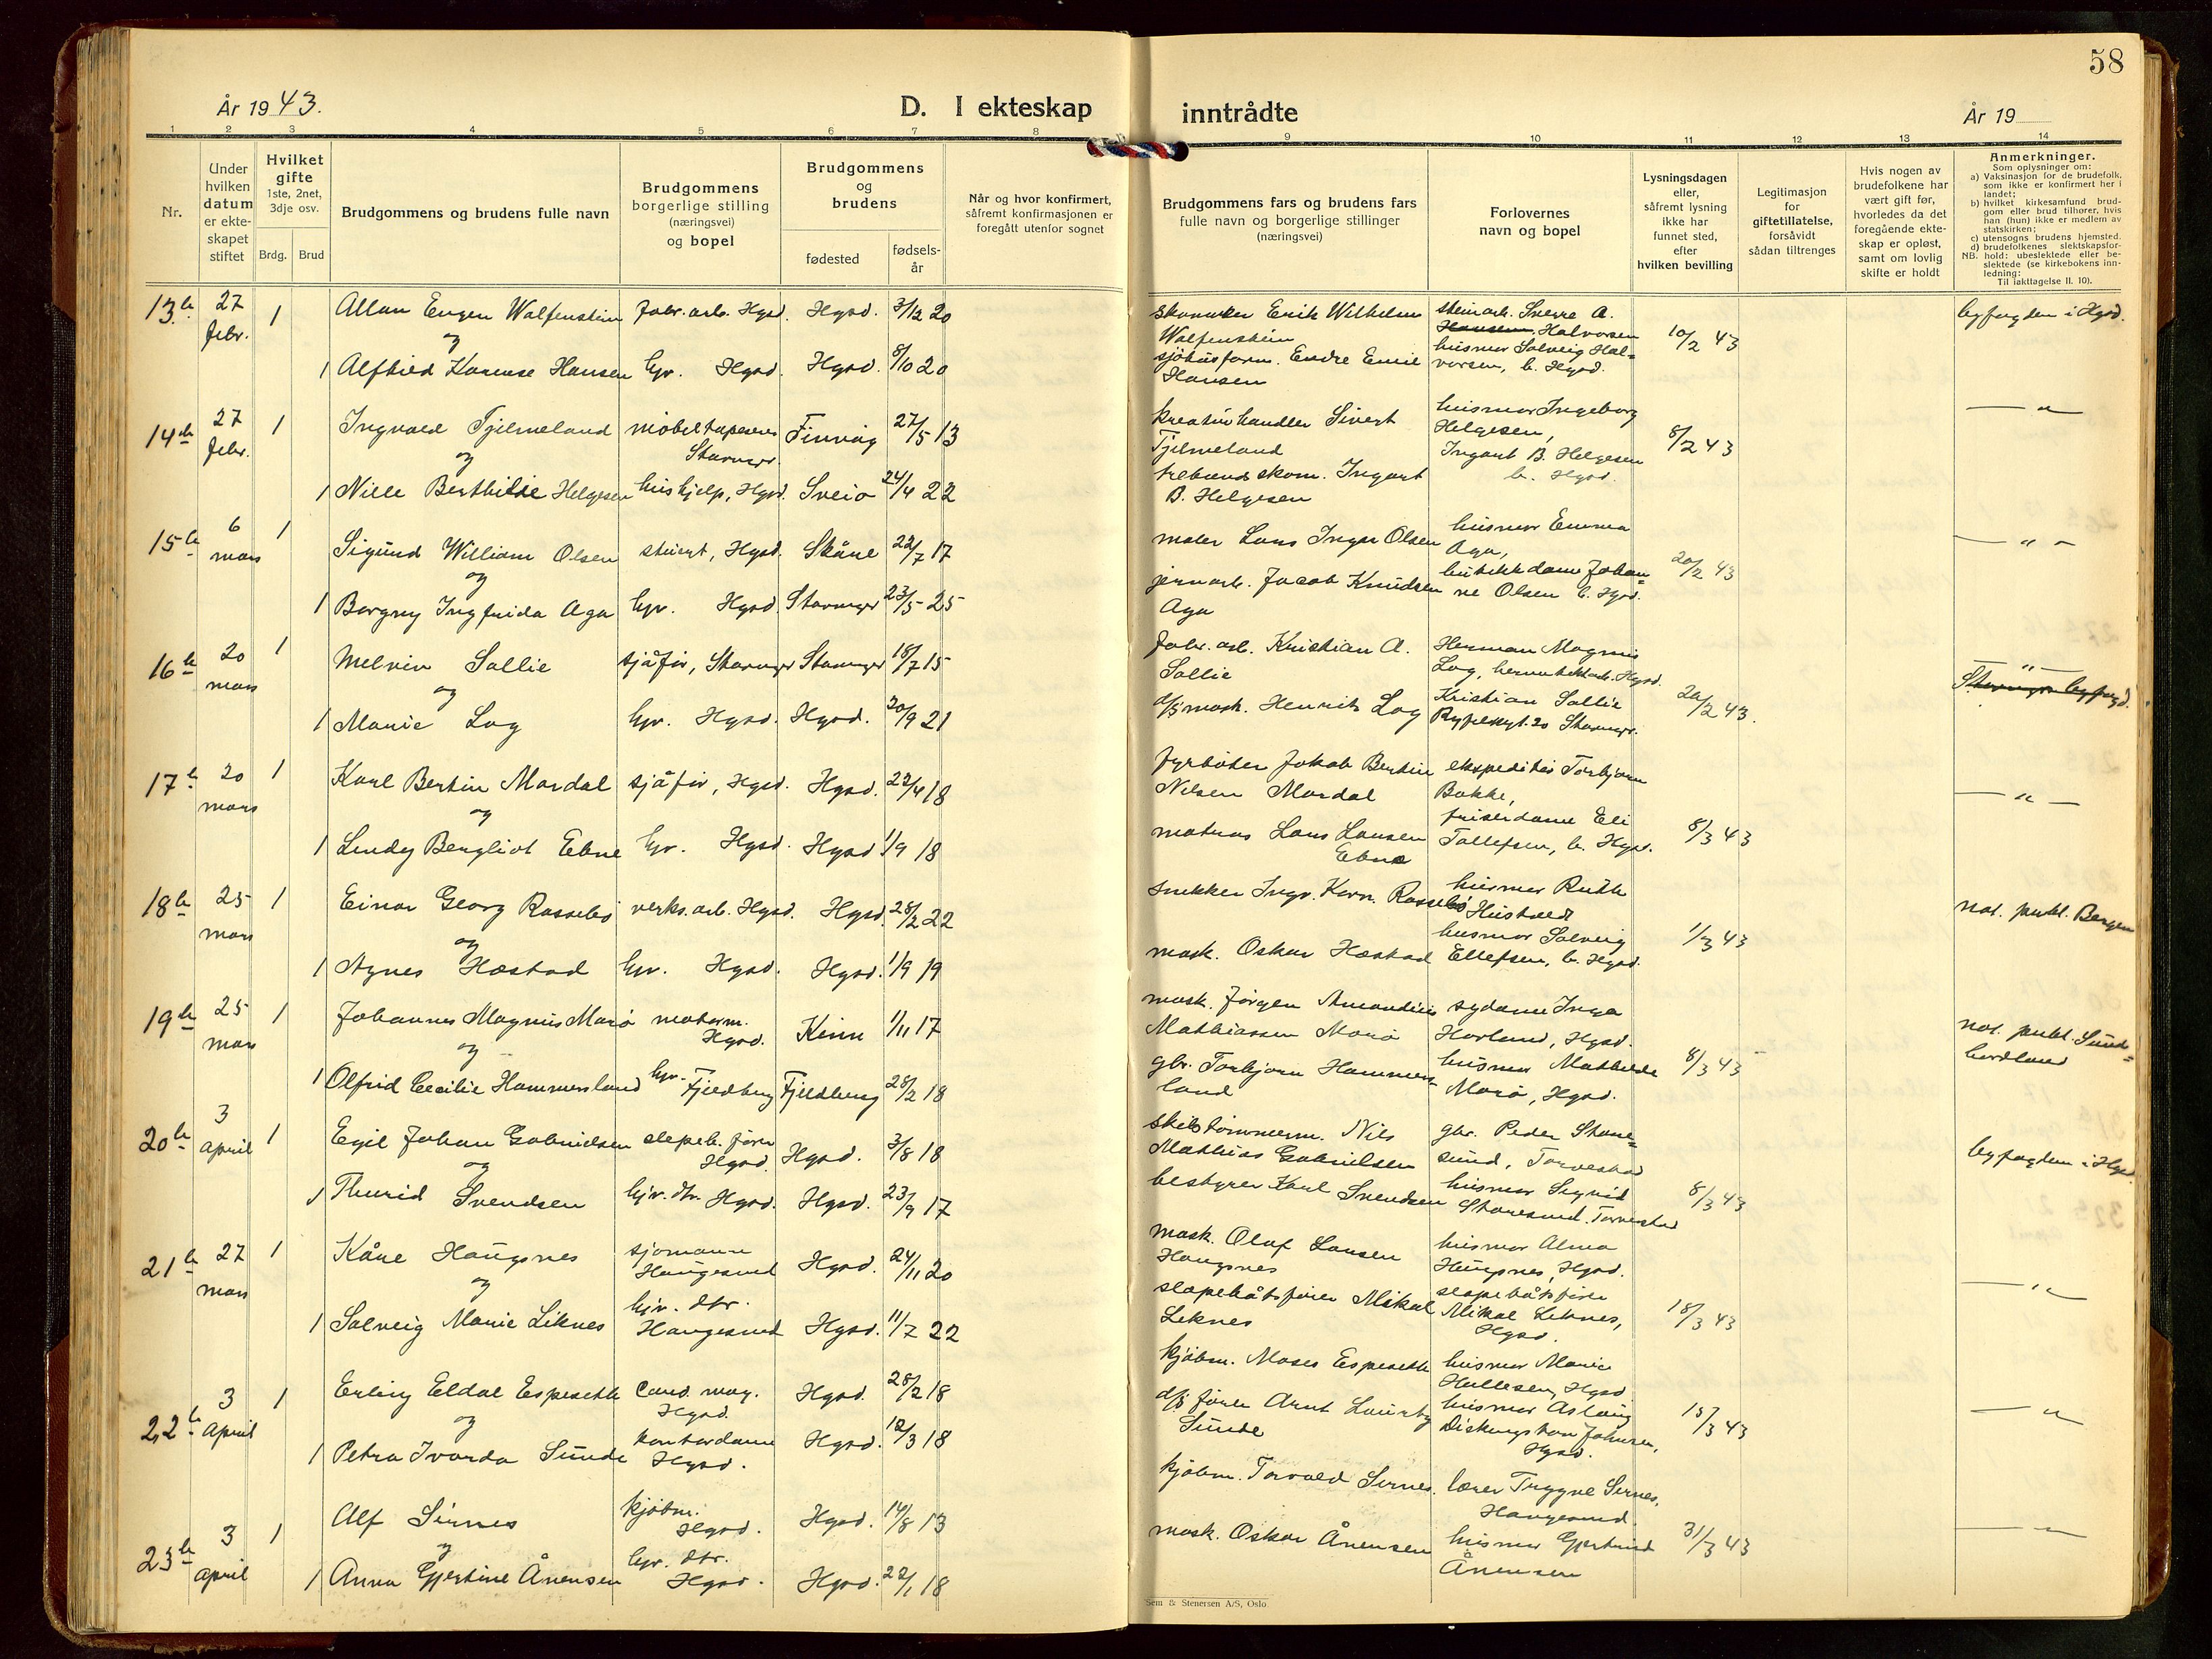 58
År 1943.
D. I ekteskap inntrådte
År 19
1 2 3 4 5 6 7 8 9 10 11 12 13 14
Nr.
Under
hvilken
datum
er ekte-
skapet
stiftet
Hvilket
gifte
1ste, 2net,
3dje osv.
Brdg. Brud
Brudgommens og brudens fulle navn
Brudgommens
borgerlige stilling
(næringsvei)
og bopel
Brudgommens
og
brudens
fødested
fødsels-
år
Når og hvor konfirmert,
såfremt konfirmasjonen er
foregått utenfor sognet
Brudgommens fars og brudens fars
fulle navn og borgerlige stillinger
(næringsvei)
Forlovernes
navn og bopel
Lysningsdagen
eller,
såfremt lysning
ikke har
funnet sted,
efter
hvilken bevilling
Legitimasjon
for
giftetillatelse,
forsåvidt
sådan tiltrenges
Hvis nogen av
brudefolkene har
vært gift før,
hvorledes da det
foregående ekte-
skap er opløst,
samt om lovlig
skifte er holdt
Anmerkninger.
Som oplysninger om:
a) Vaksinasjon for de brudefolk,
som ikke er konfirmert her i
landet;
b) hvilket kirkesamfund brud-
gom eller brud tilhører, hvis
han (hun) ikke er medlem av
statskirken;
c) utensogns brudens hjemsted.
d) brudefolkenes slektskapsfor-
NB. hold: ubeslektede eller be-
slektede (se kirkebokens inn-
ledning:
Til iakttagelse II. 10).
13de 27 febr. 1 Allan Eugen Wolfenstein fabr. arb. Hgsd. Hgsd. 3/12 20
og
1 Alfhild Karense Hansen hjv. Hgsd. Hgsd. 8/10 20
skomaker Erik Wilhelm
Wolfenstein
sjåhusform. Endre Emil
Hansen
steinarb. Sverre A.
Hansen, Halvorsen
husmor Solveig Hal-
vorsen, b. Hgsd.
10/2 43
byfogden i Hgsd.
14de 27 febr. 1 Ingvald Tjelmeland møbeltapeserer Stavanger Finnvåg 27/5 13
og
1 Nille Berthilde Helgesen hushjelp, Hgsd. Sveio 24/4 22
kreaturhandler Sivert
Tjelmeland
trebundskom. Ingart
B. Helgesen
husmor Ingeborg
Helgesen,
Ingart B. Helgesen
b. Hgsd.
8/2 43
— " —
15de 6 mars 1 Sigurd William Olsen stuert, Hgsd. Skåne 22/7 17
og
1 Borgny Ingfrida Aga hjv. Hgsd. Stavanger 23/5 25
maler Lars Ingv. Olsen
jernarb. Jacob Knudsen
Aga
husmor Emma
Aga,
butikkdame Johan-
ne Olsen b. Hgsd.
20/2 43
— " —
16de 20 mars 1 Melvin Sallie sjåfør, Stavanger Stavanger 18/7 15
og
1 Marie Log hjv. Hgsd. Hgsd. 20/9 21
fabr. arb. Kristian A.
Sallie
d/s mask. Henrik Log
Herman Magnus
Log, hermetikkarb. Hgsd.
Kristian Sallie
Rypekgt. 20 Stavanger.
20/2 43.
— " —
Stavanger byfogd.
17de 20 mars 1 Karl Bertin Mardal sjåfør, Hgsd. Hgsd. 22/4 18
og
1 Lendy Bergliot Ebne hjv. Hgsd. Hgsd 1/9 18
fyrbøter Jakob Bertin
Nilsen Mardal
matros Lars Larsen
Ebne
ekspeditør Torbjørn
Bakke,
friserdame Eli
Tollefsen, b. Hgsd.
8/3 43
— " —
18de 25 mars 1 Einar Georg Rossebø verks. arb. Hgsd. Hgsd. 28/2 22
og
1 Agnes Hæstad hjv. Hgsd. Hgsd. 1/9 19
snekker Ingv. Korn. Rossebø
mask. Oskar Hæstad
husmor Ruth
Hustvedt
husmor Solveig
Ellefsen, b. Hgsd.
1/3 43
not. publ. Bergen
19de 25 mars 1 Johannes Magnus Marø motorm. Hgsd. Kinn 1/11 17
og
1 Olfrid Cecilie Hammersland hjv. Fjeldberg Fjeldberg 28/2 18
mask. Jørgen Amandius
Mathiassen Marø
gbr. Torbjørn Hammers-
land
sydame Inga
Hovland, Hgsd.
husmor Mathilde
Marø, Hgsd.
8/3 43
not. publ. Sunn-
hordland
20de 3 april 1 Egil Johan Gabrielsen slepeb. fører Hgsd. Hgsd. 3/8 18
og
1 Thurid Svendsen hjv. dtr. Hgsd. Hgsd. 23/9 17
skibstømmerm. Nils
Mathias Gabrielsen
bestyrer Karl Svendsen
gbr. Peder Stare-
sund, Torvestad
husmor Sigrid
Staresund. Torvestad
8/3 43
byfogden i Hgsd.
21de 27 mars 1 Kåre Haugsnes sjømann Haugesund Hgsd. 24/11 20
og
1 Solveig Marie Liknes hjv. dtr. Haugesund Hgsd. 11/7 22
mask. Olaf Larsen
Haugsnes
slepebåtsfører Mikal
Liknes
husmor Alma
Haugsnes, Hgsd.
slepebåtsfører
Mikal Liknes,
Hgsd.
18/3 43
— " —
22de 3 april 1 Erling Eldal Espeseth Cand. mag. Hgsd. Hgsd. 28/2 18
og
1 Petra Ivarda Sunde kontordame Hgsd. Hgsd. 12/3 18
kjøbm. Moses Espeseth
d/s fører Arnt Lauritz
Sunde
husmor Marie
Hellesen, Hgsd
husmor Aslaug
Diskingston Johnsen,
Hgsd.
15/3 43
— " —
23de 3 april 1 Alf Sirnes kjøbm. Hgsd. Hgsd. 14/8 13
og
1 Anna Gjertine Ånensen hjv. dtr. Hgsd. Hgsd. 22/1 18
kjøbm. Torvald Sirnes.
mask. Oskar Ånensen
lærer Trygve Sirnes,
Haugesund.
husmor Gjertrud
Ånensen
31/3 43
— " —
Sem & Stenersen A/S, Oslo